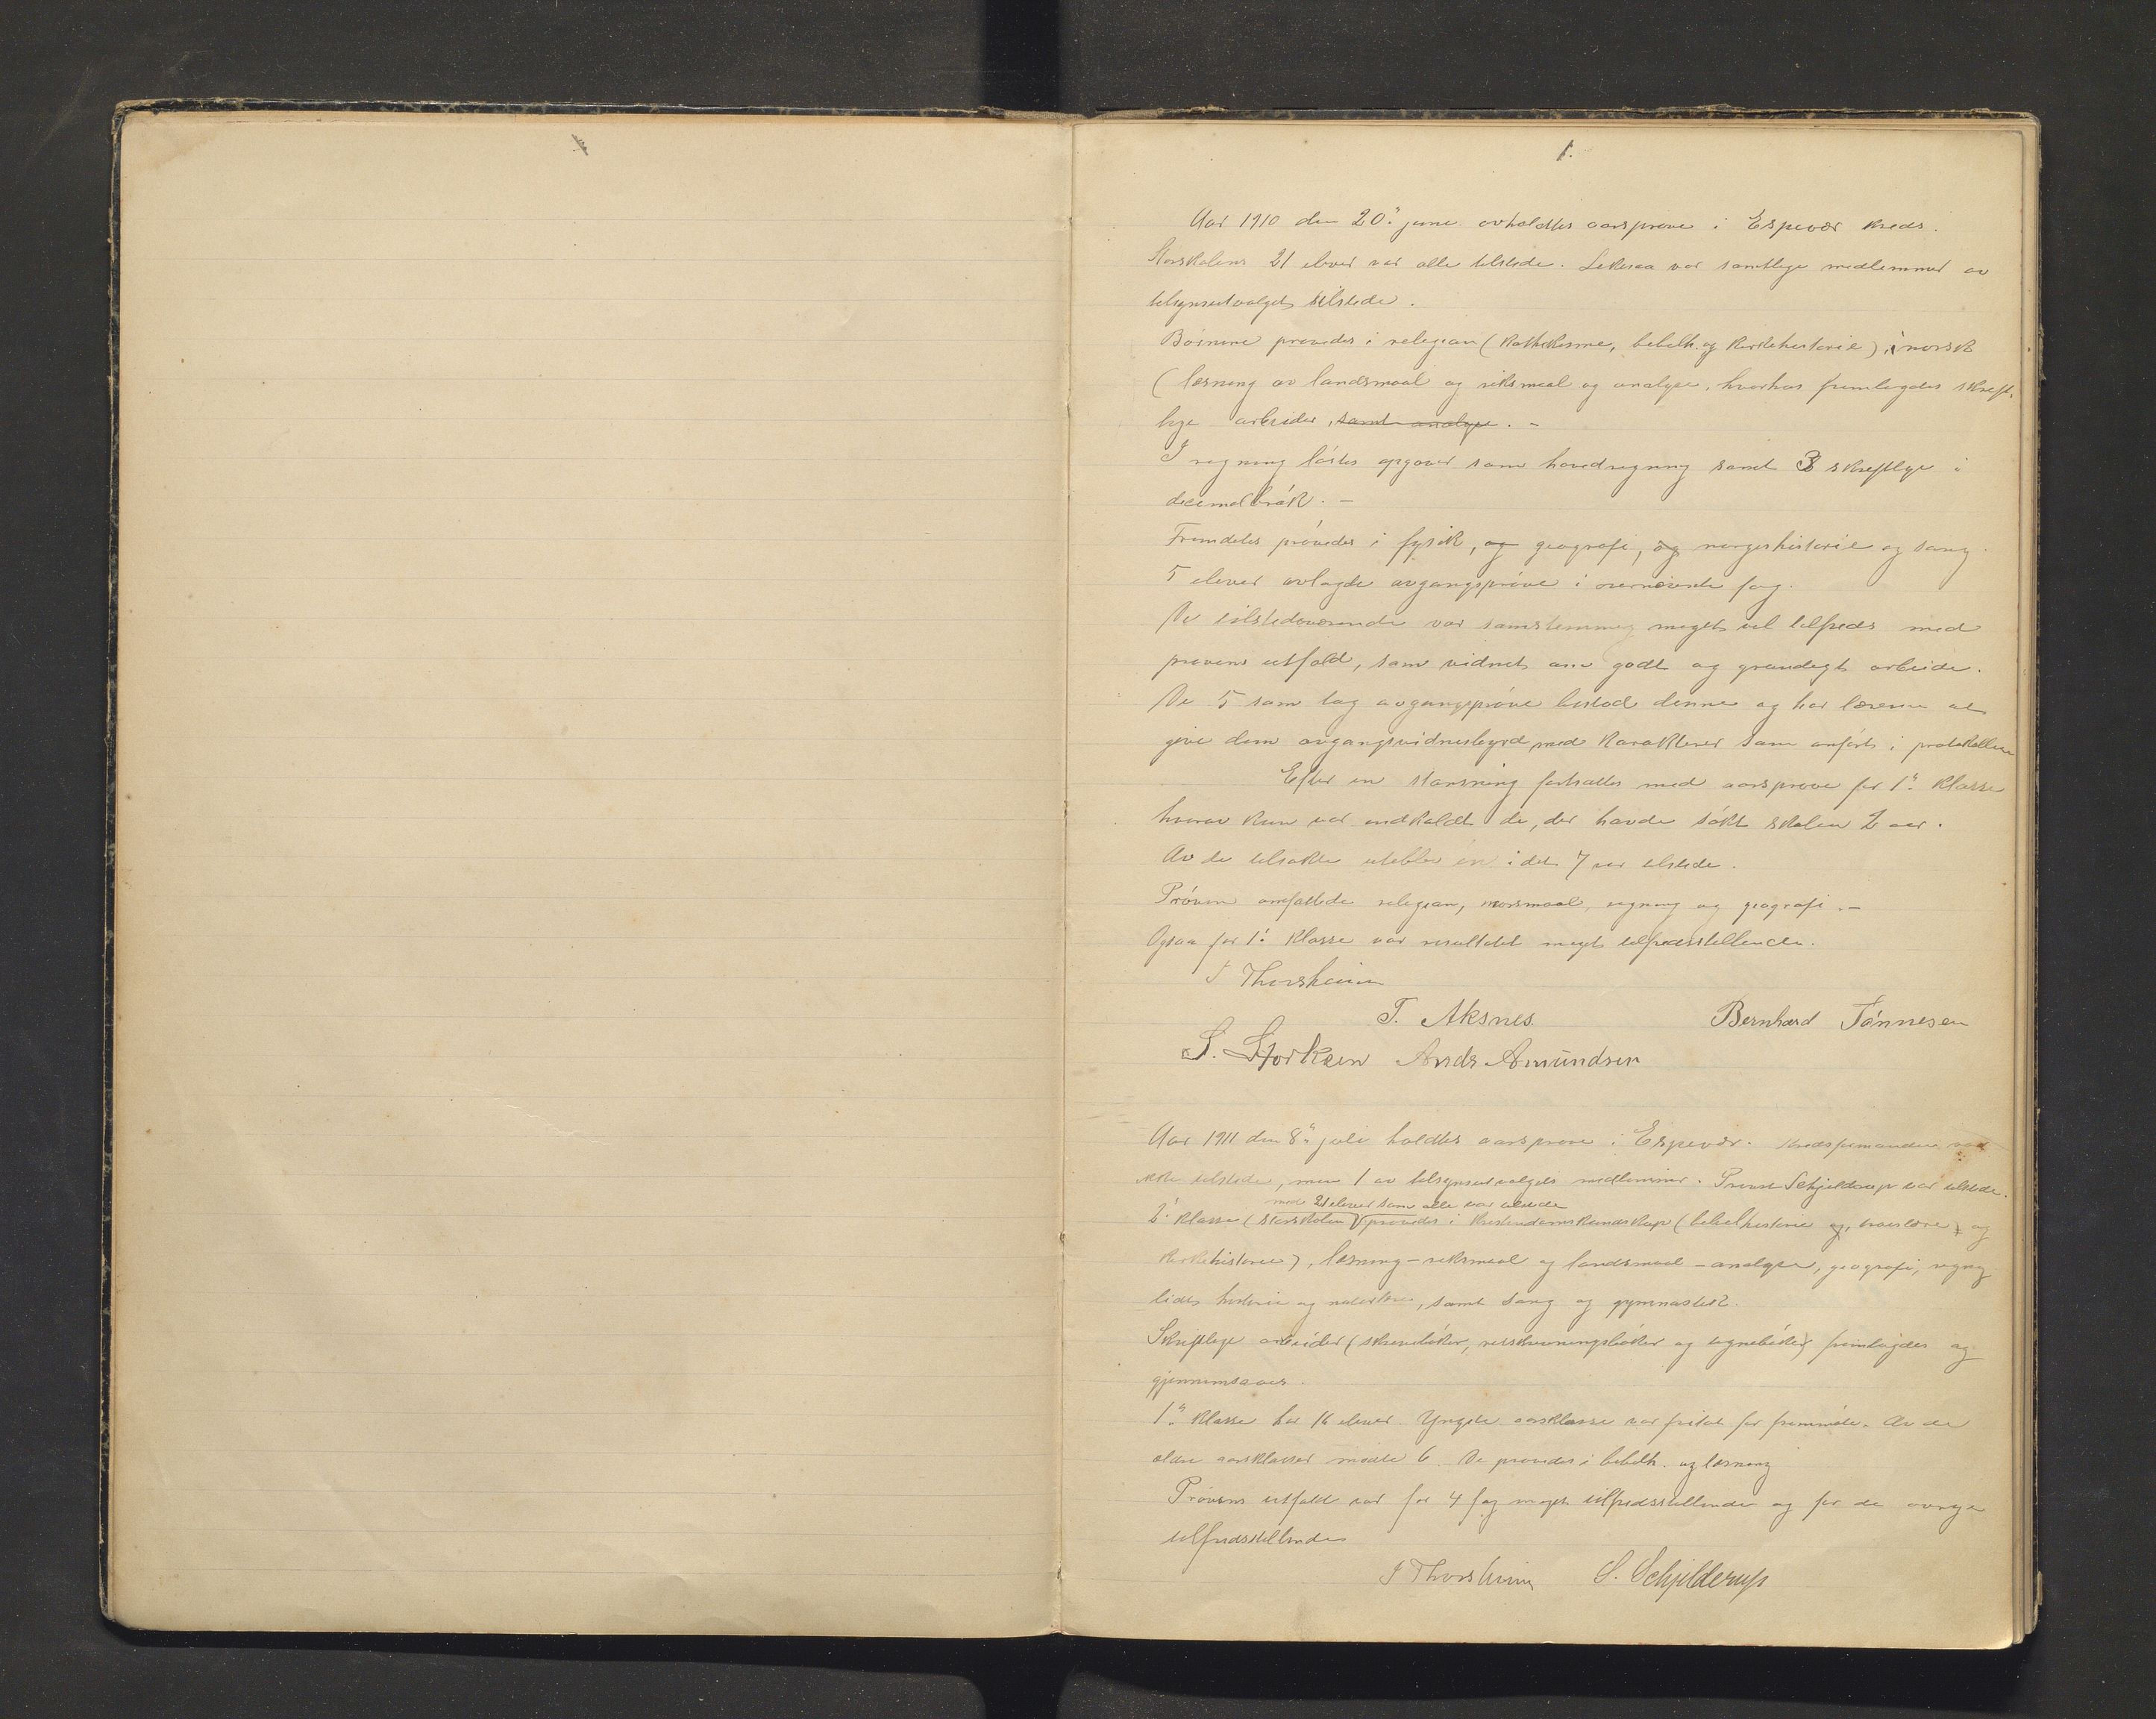 1.
Aar 1910 den 20.de juni avholdtes aarsprøve i Espevær kreds.
Storskolens 21 elever var alle tilstede. Likesaa var samtlige medlemmer av
tilsynsutvalget tilstede.
Børnene prøvedes i religion (katekisme, bibelh. og kirkehistorie), i norsk
(læsning av landsmaal og riksmaal og analyse, hvorhos fremlagdes skrift-
lige arbeider, samt analyse. -
I regning løstes opgaver som hovedregning samt 3 skriftlige i
decimalbrøk. -
Fremdeles prøvedes i fysik, og geografi, og norgeshistorie og sang.
5 elever avlagde avgangsprøve i overnævnte fag.
De tilstedeværende var samstemmig meget vel tilfreds med
prøvens utfald, som vidnet om godt og grundigt arbeide.
De 5 som tog avgangsprøve bestod denne og har læreren at
give dem avgangsvidnesbyrd med karakterer som anført i protokollen
Efter en stansning fortsattes med aarsprøve for 1.ste klasse
hvorav kun var indkaldt de, der havde søkt skolen 2 aar.
Av de tilsakte uteblev én idet 7 var tilstede.
Prøven omfattede religion, morsmaal, regning og geografi. -
Ogsaa for 1. klasse var resultatet meget tilfredsstillende.
I Thorsheim
T. Aksnes. Bernhard Tønnesen
S. Storksen Ands Amundsen
Aar 1911 den 8.de juli holdtes aarsprøve i Espevær. Kredsformanden var
ikke tilstede, men 1 av tilsynsutvalgets medlemmer. Provst Schjelderup var tilstede.
med 21 elever som alle var tilstede
2. klasse (storskolen) prøvedes i kristendomskundskap (bibelhistorie og, troeslære, og
kirkehistorie), læsning - riksmaal og landsmaal - analyse, geografi, regning
litt historie og naturlære, samt sang og gymnastik.
Skriftlige arbeider (skrivebøker, retskrivningsbøker og regnebøker) fremlagdes og
gjennemsaaes.
1.ste klasse har 16 elever. Yngste aarsklasse var fritat for fremmøte. Av de
ældre aarsklasser møtte 6. De prøvedes i bibelh. og læsning
Prøvens utfald var for 4 fag meget tilfredsstillende og for de øvrige
tilfredsstillende
I Thorsheim S. Schjelderup